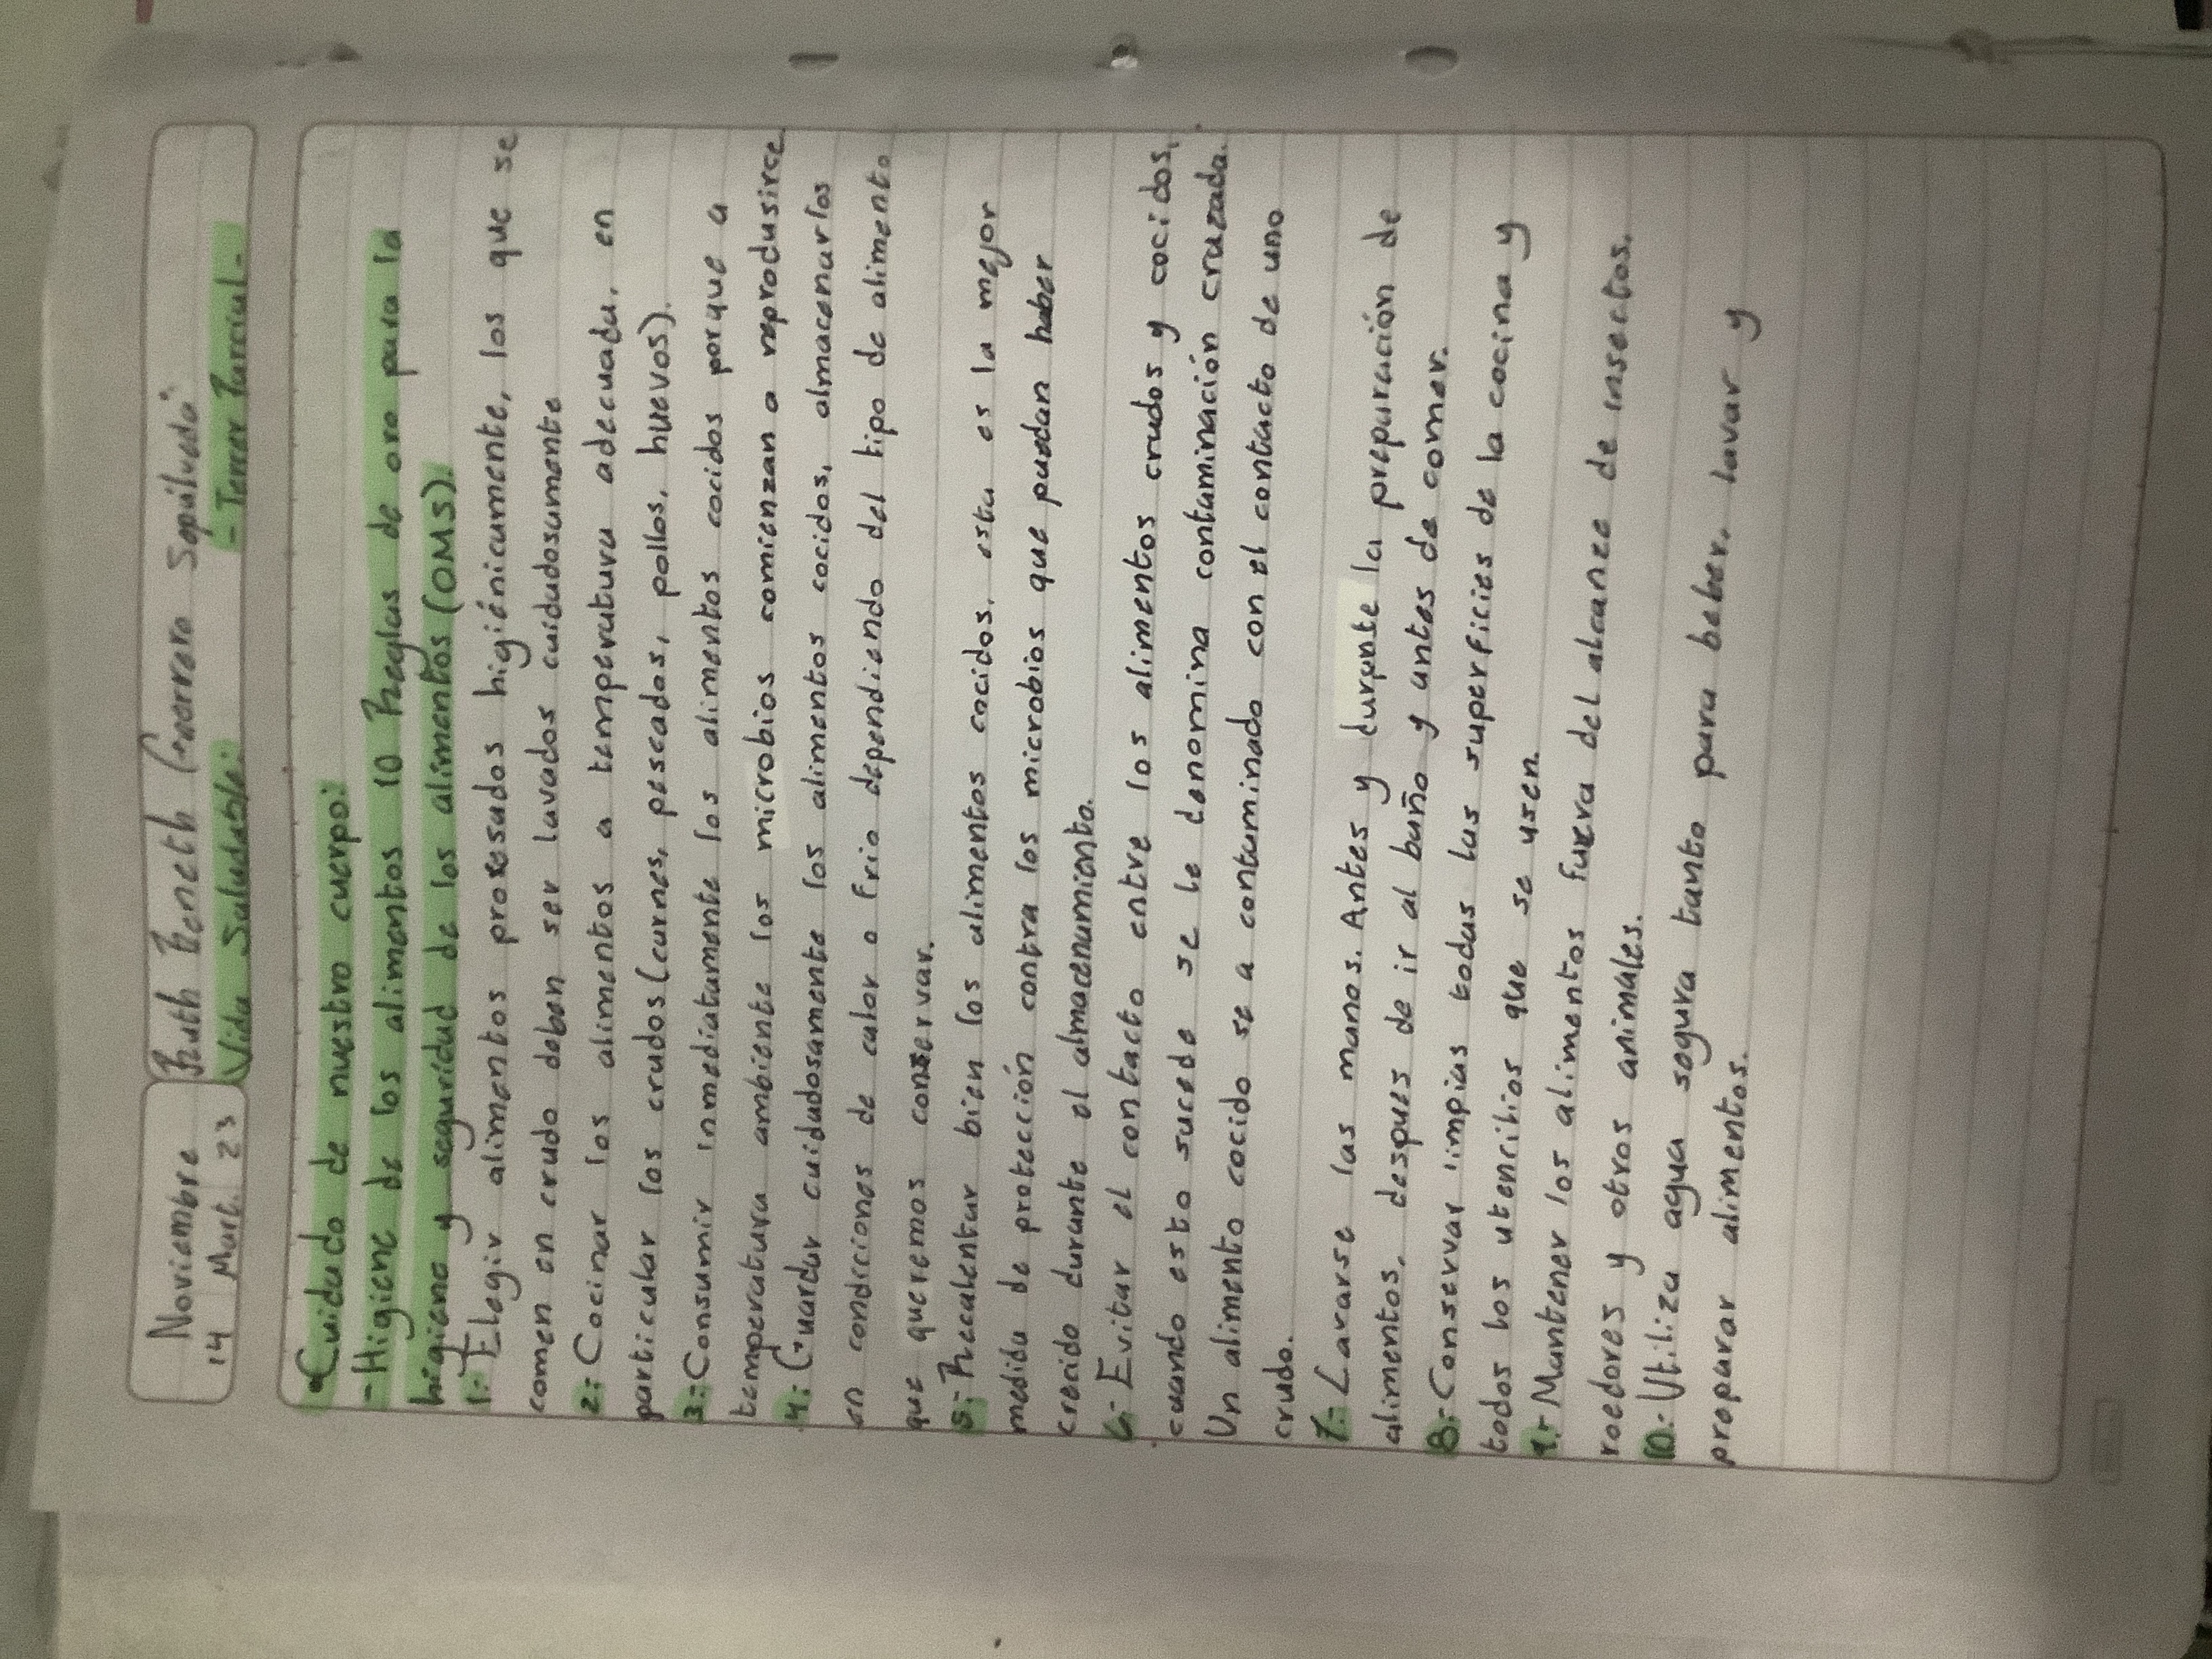 Noviembre
14 Mart. 23
Ruth Yeneth Guerrero Sepúlveda
Vida Saludable:
- Tercer Parcial -
"Cuidado de nuestro cuerpo:
- Higiene de los alimentos 10 Reglas de oro para la
higiene y seguridad de los alimentos (OMS).
1.- Elegir alimentos prosesados higiénicamente, los que se
comen en crudo deben ser lavados cuidadosamente
2.- Cocinar los alimentos a temperatura adecuada, en
particular los crudos (carnes, pescados, pollos, huevos).
3.- Consumir inmediatamente los alimentos cocidos porque a
temperatura ambiente los microbios comienzan a reprodusirce
4.- Guardar cuidadosamente los alimentos cocidos, almacenarlos
en condiciones de calor o frio dependiendo del tipo de alimento
que queremos conservar.
5.- Recalentar bien los alimentos cocidos, esta es la mejor
medida de protección contra los microbios que puedan haber
crecido durante el almacenamiento.
6.- Evitar el contacto entre los alimentos crudos y cocidos,
cuando esto sucede se le denomina contaminación cruzada.
Un alimento cocido se a contaminado con el contacto de uno
crudo.
7.- Lavarse las manos. Antes y durante la preparación de
alimentos, despues de ir al baño y antes de comer.
8.- Conservar limpias todas las superficies de la cocina y
todos los utencilios que se usen.
9.- Mantener los alimentos fuera del alcance de insectos,
roedores y otros animales.
10.- Utiliza agua segura tanto para beber, lavar y
preparar alimentos.